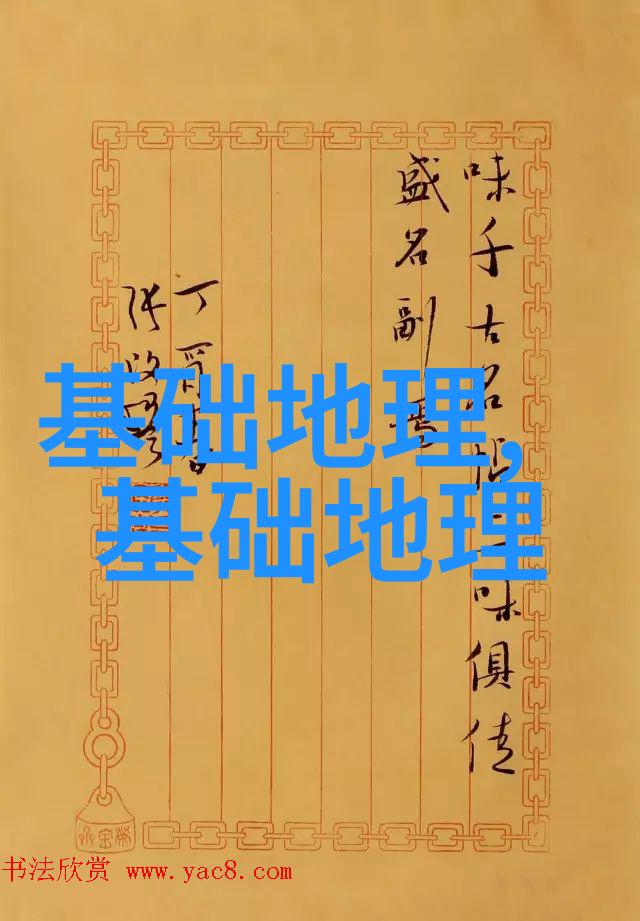 味千古名味俱佳
盛名副
丁酉
张改琴
基础地理,
基础地理
书法欣赏 www.yac8.com